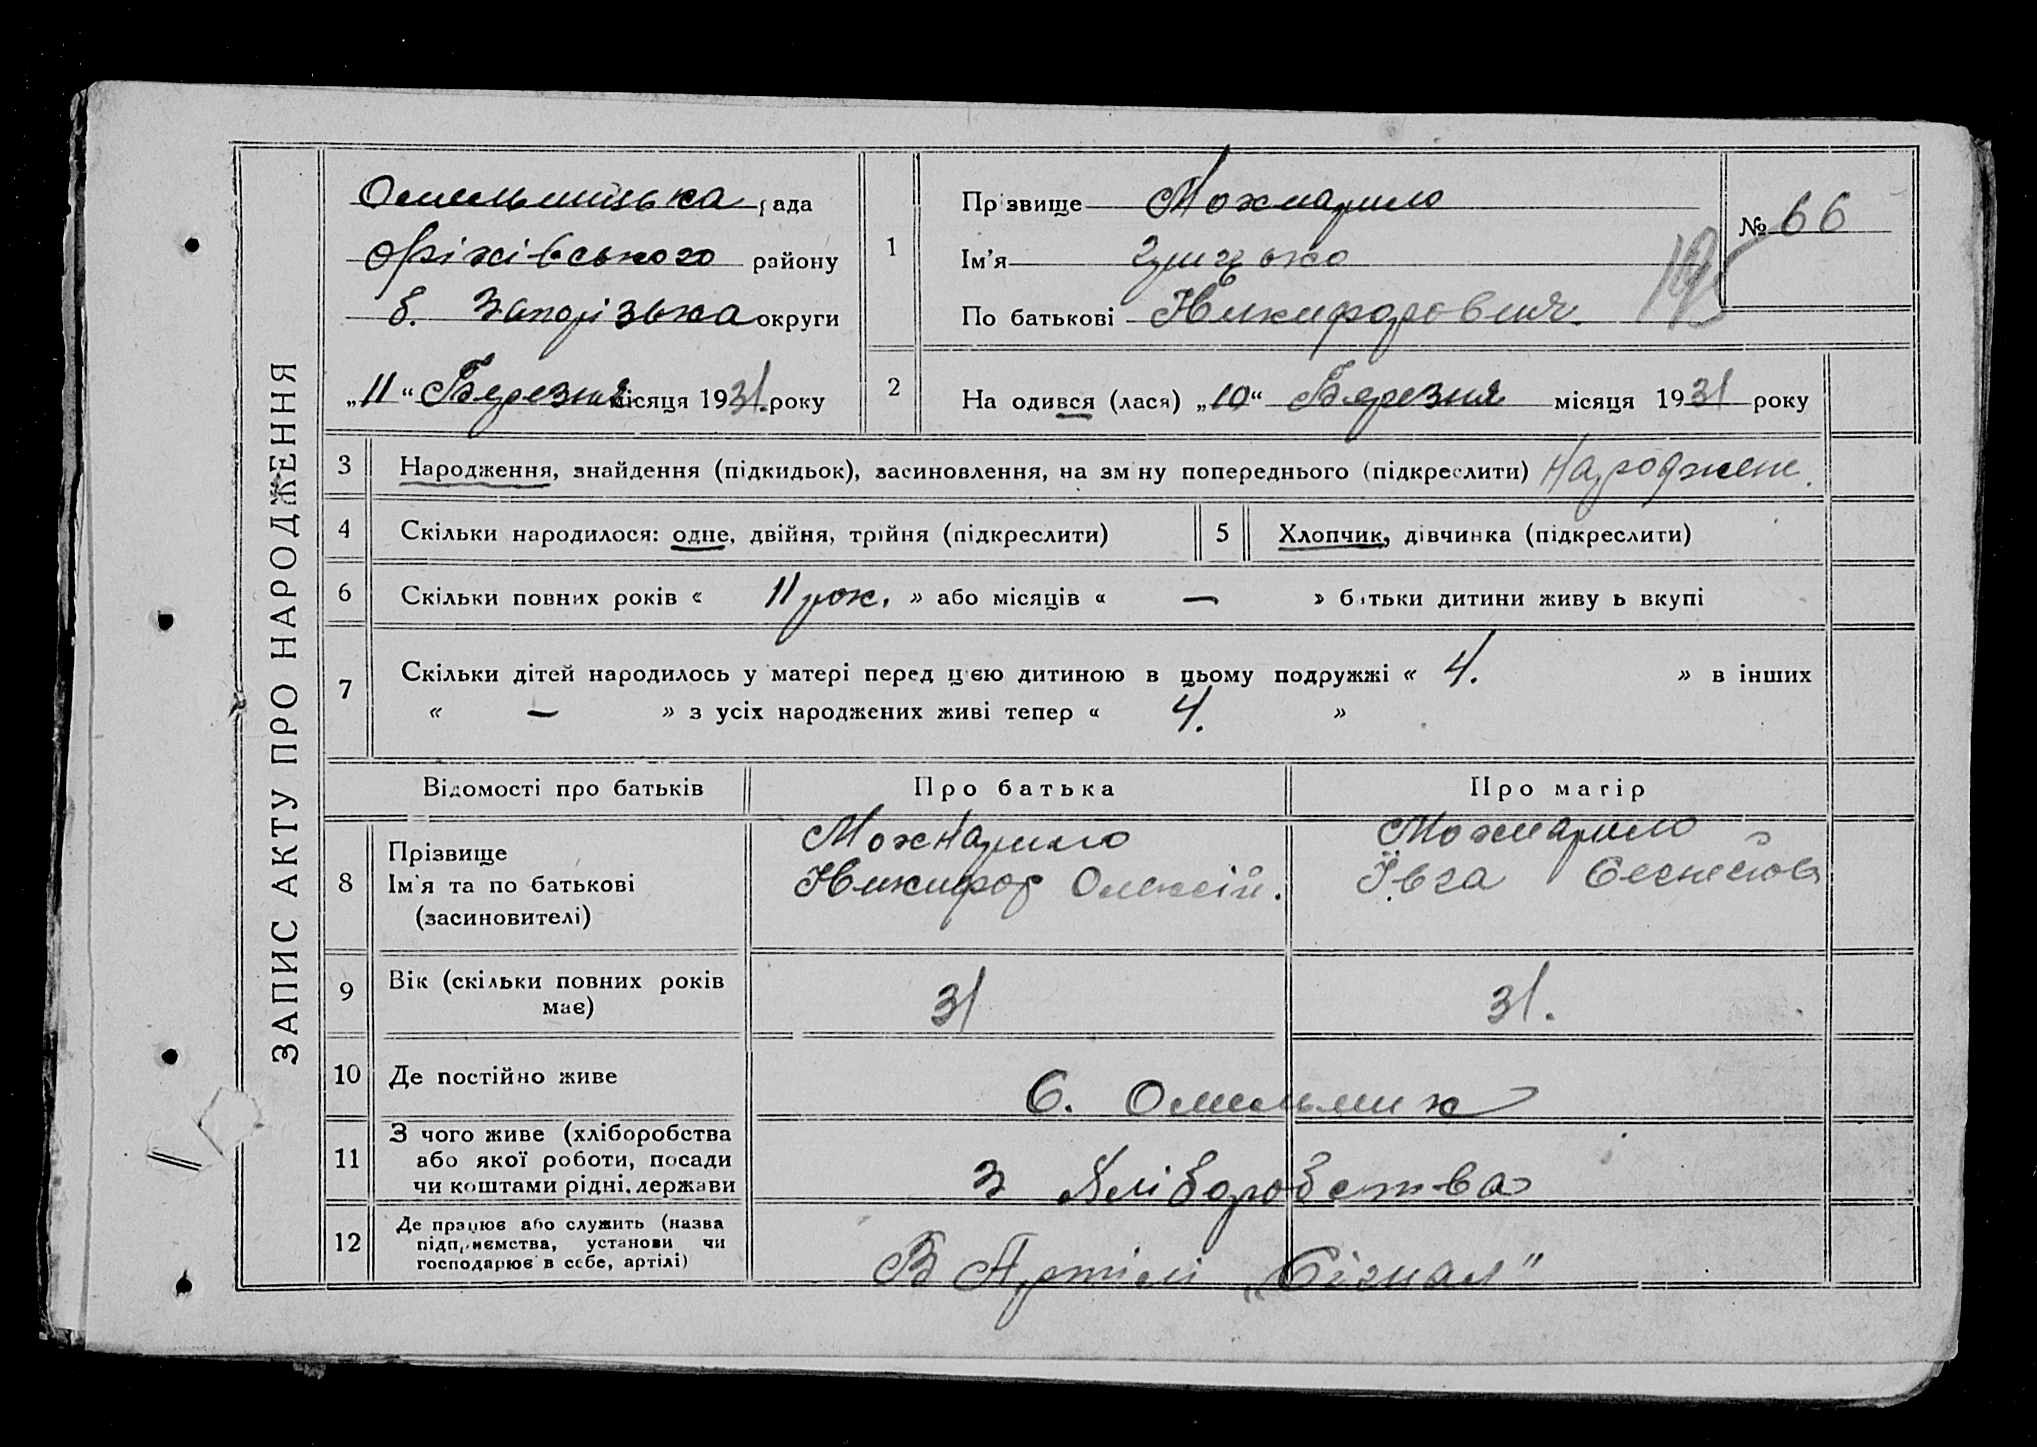 ЗАПИС АКТУ ПРО НАРОДЖЕННЯ
Омельницька рада
Оріхівського району
б. Запорізька округи
„11“ Березня місяця 1931 року
1
Прізвище Можнарило
Ім'я Грицько
По батькові Никифорович.
№ 66
2
На одився (лася) „10“ Березня місяця 1931 року
3 Народження, знайдення (підкидьок), засиновлення, на зміну попереднього (підкреслити) Народжене.
4 Скільки народилося: одне, двійня, трійня (підкреслити) 5 Хлопчик, дівчинка (підкреслити)
6 Скільки повних років « 11 рок. » або місяців « — » батьки дитини живу ь вкупі
7 Скільки дітей народилось у матері перед цією дитиною в цьому подружжі « 4. » в інших
« — » з усіх народжених живі тепер « 4. »
Відомості про батьків Про батька Про матір
8 Прізвище Можнарило Можнарило
Ім'я та по батькові Никифор Олексій. Ївга
(засиновителі)
9 Вік (скільки повних років має) 31 31.
10 Де постійно живе С. Омельник
11 З чого живе (хліборобства
або якої роботи, посади
чи коштами рідні, держави З Хліборобства
12 Де працює або служить (назва
підприємства, установи чи
господарює в себе, артілі) В Артілі „Сігнал"